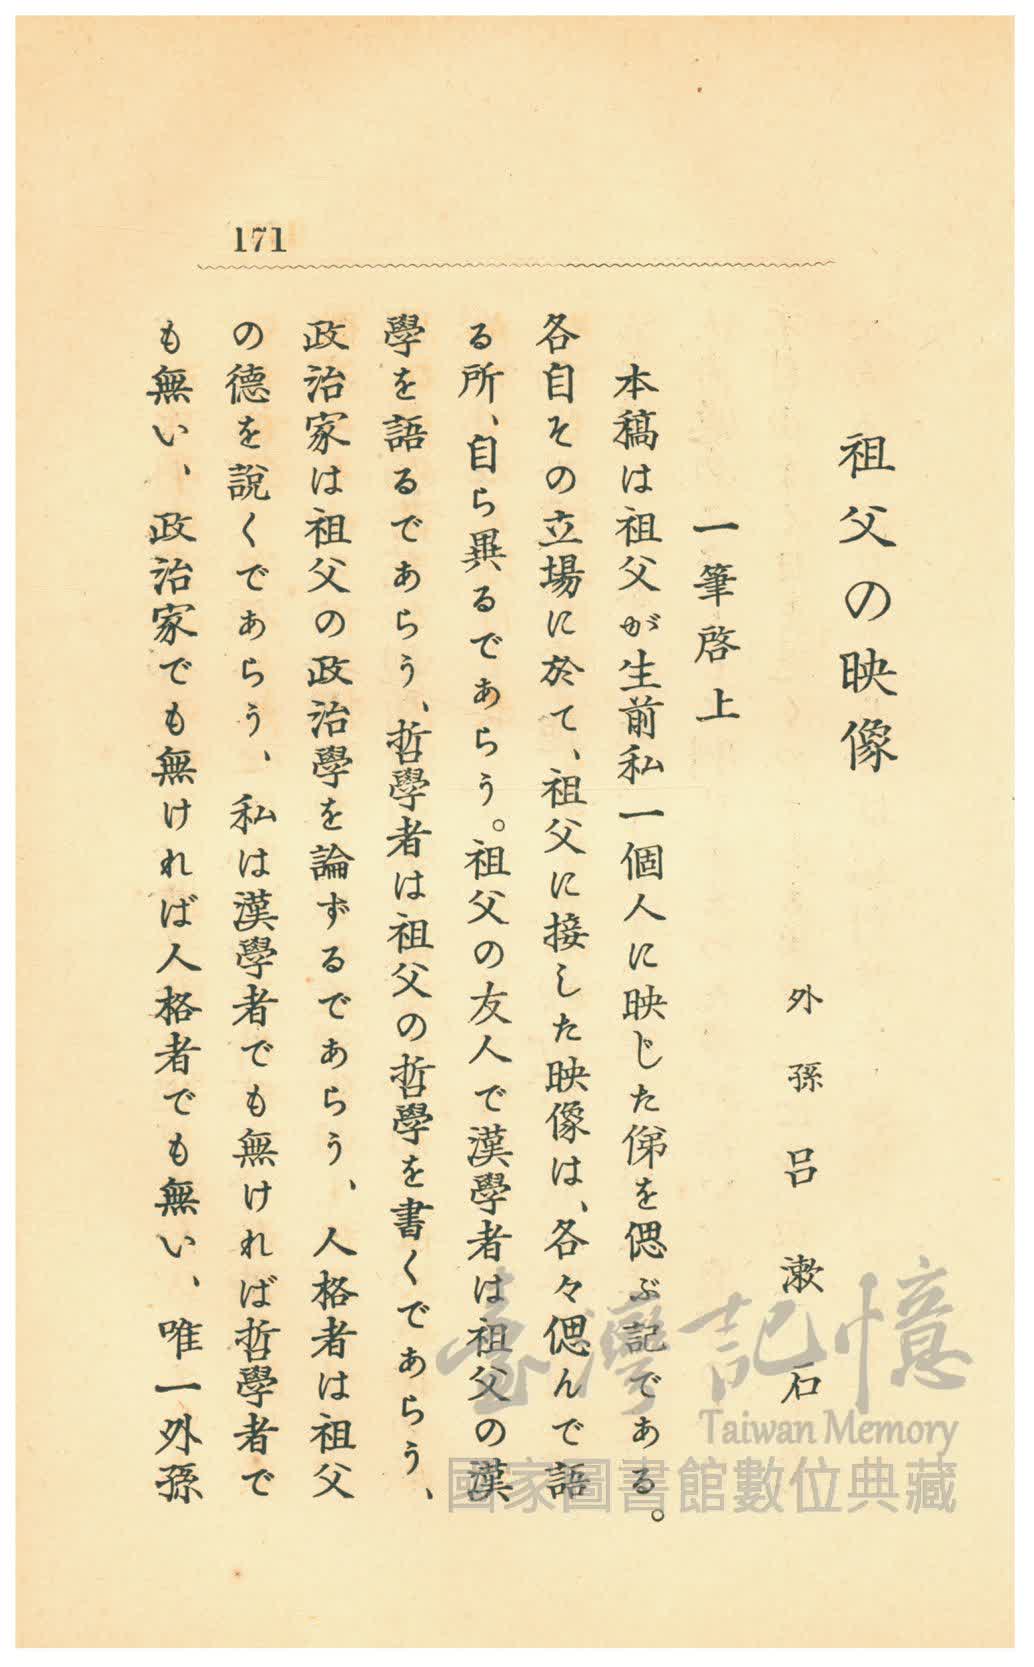 171
祖父の映像
外孫 呂漱石
一筆啓上
本稿は祖父が生前私一個人に映じた俤を偲ぶ記である。
各自その立場に於て、祖父に接した映像は、各々偲んで語
る所、自ら異るであらう。祖父の友人で漢學者は祖父の漢
學を語るであらう、哲學者は祖父の哲學を書くであらう、
政治家は祖父の政治學を論ずるであらう、人格者は祖父
の德を說くであらう、私は漢學者でも無ければ哲學者で
も無い、政治家でも無ければ人格者でも無い、唯一外孫
臺灣記憶
Taiwan Memory
國家圖書館數位典藏